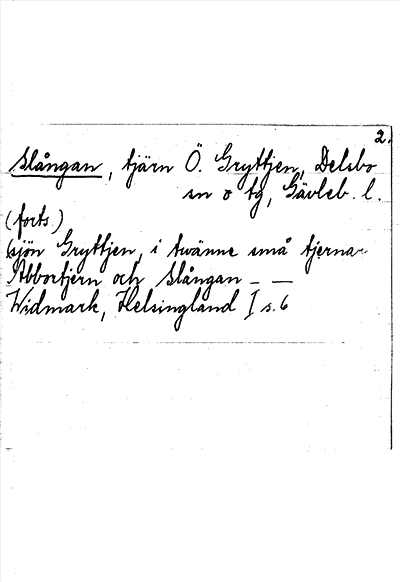 2.
Slångan, tjärn Ö. Gryttjen, Delsbo
sn o tg, Gävleb. l.
(forts.)
(sjön Gryttjen, i twänne små tjernar
Abbortjern och Slångan – —
Widmark, Helsingland I s. 6